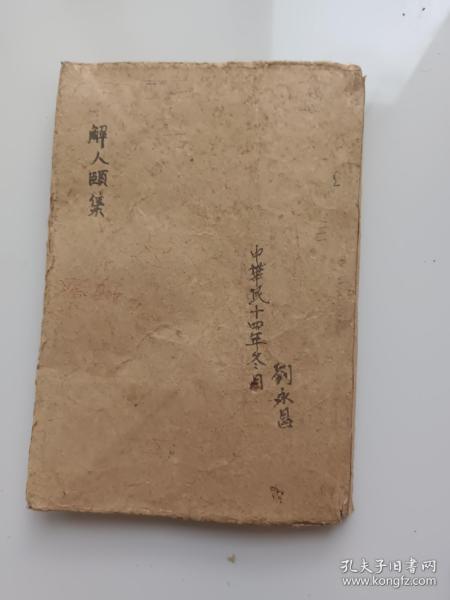 解人頤集
中華民十四年冬月
劉永昌
孔夫子旧书网
www.kongfz.com